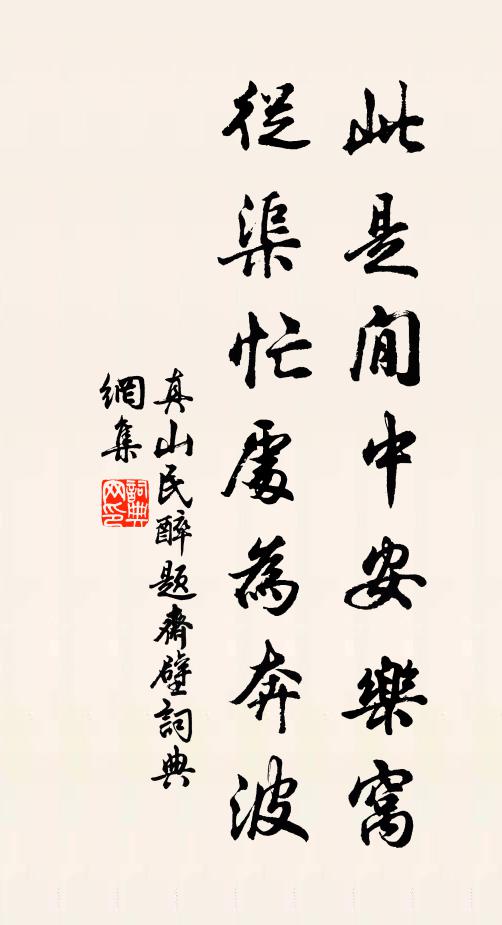 此是閒中安樂窩
從渠忙處為奔波
真山民醉題齋壁詞典
網集
詞典
网印